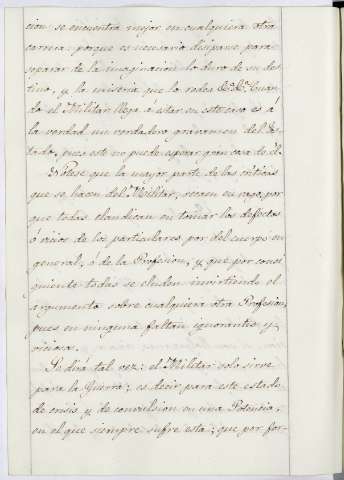 cion se encuentra mejor en cualquiera otra
carrera: porque es necesario disiparse para
separar de la imaginacion lo duro de su des
tino, y la miseria que lo rodea &.ª &.ª Cuan
do el Militar llega á estar en este caso es á
la verdad un verdadero gravamen del Es
tado, pues este no puede esperar gran cosa de él.
Notese que la mayor parte de las criticas
que se hacen del Militar, recaen en vago, por
que todas claudican en tomar los defectos
ó vicios de los particulares por del cuerpo en
general, ó de la Profesion, y que por consi
guiente todas se eluden invirtiendo el
argumento sobre cualquiera otra Profesion,
pues en ninguna faltan ignorantes y
viciosos.
Se dirá tal vez: el Militar solo sirve
para la Guerra; es decir para este estado
de crisis y de convulsion en una Potencia,
en el que siempre sufre esta; que por for-